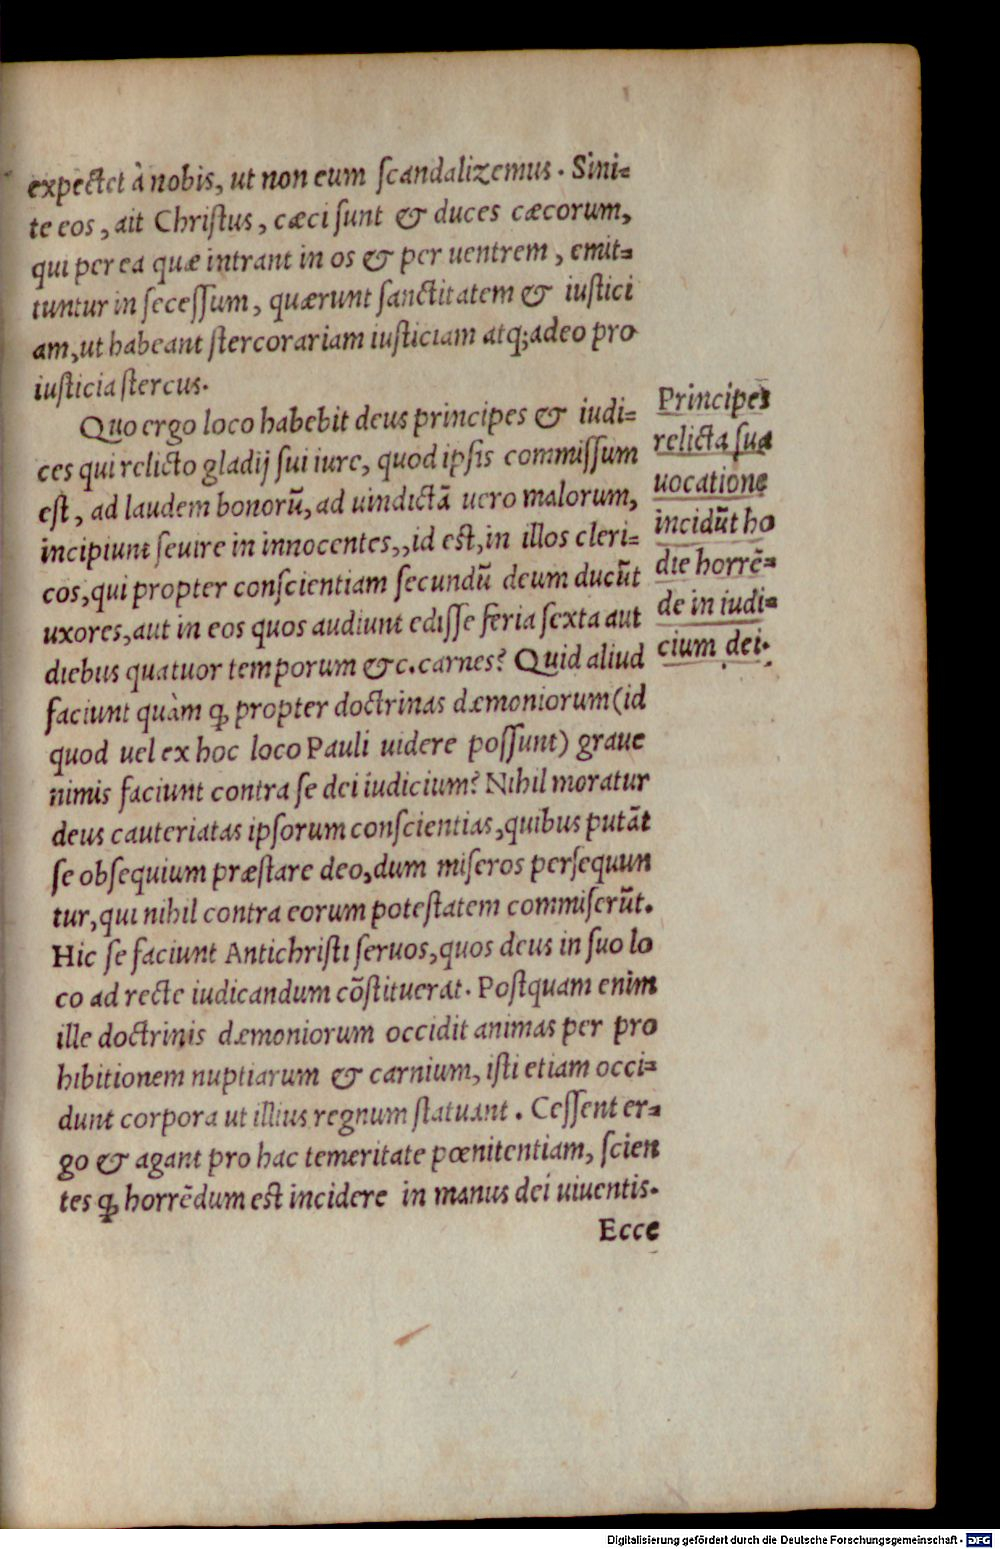 expectet à nobis, ut non eum ſcandalizemus. Sini=
te eos, ait Chriſtus, cæci ſunt & duces cæcorum,
qui per ea quæ intrant in os & per uentrem, emit=
tuntur in ſeceſſum, quærunt ſanctitatem & iuſtici
am, ut habeant ſtercorariam iuſticiam atq; adeo pro
iuſticia ſtercus.
Quo ergo loco habebit deus principes & iudi=
ces qui relicto gladij ſui iure, quod ipſis commiſſum
eſt, ad laudem bonorũ, ad uindictã uero malorum,
incipiunt ſeuire in innocentes,, id eſt, in illos cleri=
cos, qui propter conſcientiam ſecundũ deum ducũt
uxores, aut in eos quos audiunt ediſſe feria ſexta aut
diebus quatuor temporum &c. carnes? Quid aliud
faciunt quàm ꝙ propter doctrinas dæmoniorum (id
quod uel ex hoc loco Pauli uidere poſſunt) graue
nimis faciunt contra ſe dei iudicium? Nihil moratur
deus cauteriatas ipſorum conſcientias, quibus putãt
ſe obſequium præſtare deo, dum miſeros perſequun
tur, qui nihil contra eorum poteſtatem commiſerũt.
Hic ſe faciunt Antichriſti ſeruos, quos deus in ſuo lo
co ad recte iudicandum cõſtituerat. Poſtquam enim
ille doctrinis dæmoniorum occidit animas per pro
hibitionem nuptiarum & carnium, iſti etiam occi=
dunt corpora ut illius regnum ſtatuant. Ceſſent er=
go & agant pro hac temeritate pœnitentiam, ſcien
tes ꝙ horrẽdum eſt incidere in manus dei uiuentis.
Ecce
Principes
relicta ſua
uocatione
incidũt ho
die horrẽ=
de in iudi=
cium dei.
Digitalisierung gefördert durch die Deutsche Forschungsgemeinschaft - DFG